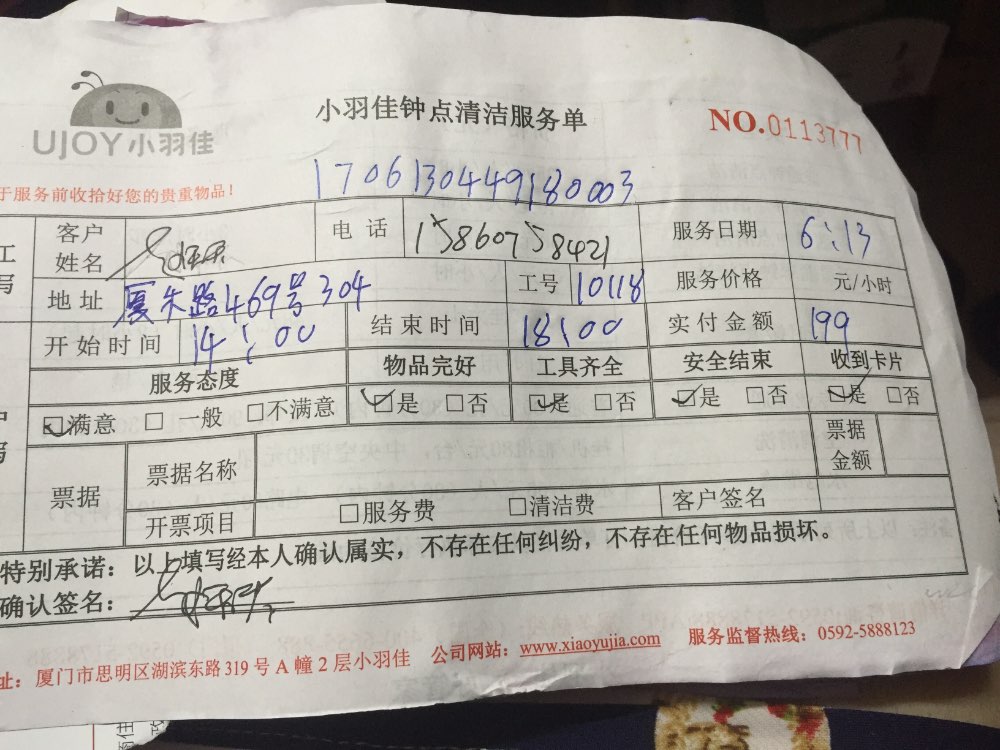 UJOY小羽佳
小羽佳钟点清洁服务单
NO.0113777
于服务前收拾好您的贵重物品!
1706130449180003
客户姓名
电话 15860758421
服务日期 6:13
地址 厦禾路469号304
工号 10118
服务价格 元/小时
开始时间 14:00
结束时间 18:00
实付金额 199
服务态度 物品完好 工具齐全 安全结束 收到卡片
☑满意 □一般 □不满意 ☑是 □否 ☑是 □否 ☑是 □否 ☑是 □否
票据 票据名称 票据金额
开票项目 □服务费 □清洁费 客户签名
特别承诺:以上填写经本人确认属实,不存在任何纠纷,不存在任何物品损坏。
确认签名:
址:厦门市思明区湖滨东路319号A幢2层小羽佳 公司网站:www.xiaoyujia.com 服务监督热线:0592-5888123